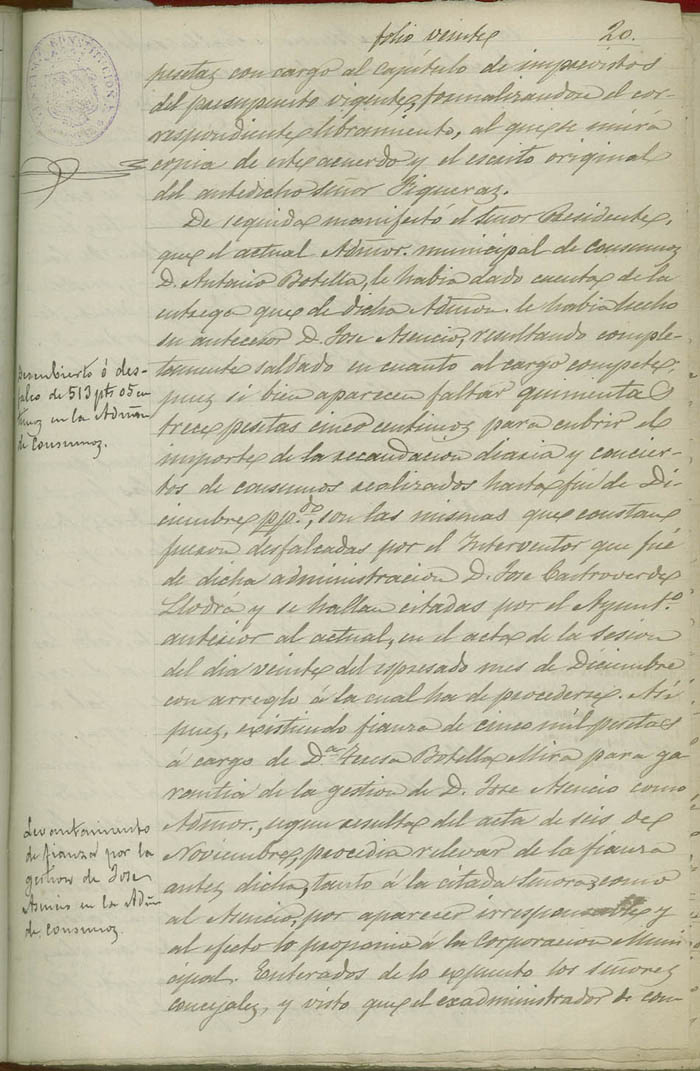 folio veinte 20.
pesetas con cargo al capítulo de imprevistos
del presupuesto vigente, formalizandose el cor-
respondiente libramiento, al que se unirá
copia de este acuerdo y el escrito original
del antedicho Señor Figueras.
De seguida manifestó el Señor Presidente,
que el actual Admor. municipal de Consumos
D. Antonio Botella, le habia dado cuenta de la
entrega que de dicha Admon. le habia hecho
su antecesor D. Jose Asencio, resultando comple-
tamente saldado en cuanto al cargo compete,
pues si bien aparecen faltar quinientas
trece pesetas cinco centimos para cubrir el
importe de la recaudacion diaria y concier-
tos de consumos realizados hasta fin de Di-
ciembre ppdo, son las mismas que constan
fueron desfalcadas por el Interventor que fué
de dicha administracion D. Jose Castroverde
Llodrá y se hallan citadas por el Ayunto.
anterior al actual, en el acta de la sesion
del dia veinte del espresado mes de Diciembre
con arreglo á la cual ha de procederse. Asi
pues, existiendo fianza de cinco mil pesetas
á cargo de Da. Teresa Botella Mira para ga-
rantia de la gestion de D. Jose Asencio como
Admor., segun resulta del acta de seis de
Noviembre, procedia relevar de la fianza
antes dicha, tanto á la citada Señora, como
al Asencio, por aparecer irresponsable y
al efecto lo proponia á la Corporacion Muni-
cipal. Enterados de lo expuesto los señores
concejales, y visto que el exadministrador de con-
Descubierto ó des-
falco de 513 pts 05 cen
timos en la Admon
de Consumos.
Levantamiento
de fianza por la
gestion de Jose
Asencio en la Admon
de consumos.